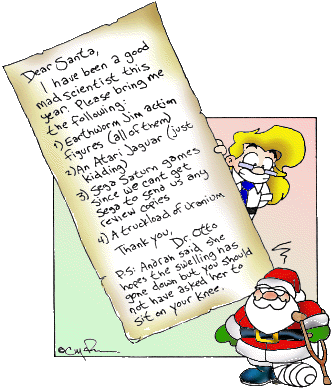 Dear Santa,
I have been a good
mad scientist this
year. Please bring me
the following:
1) Earthworm Jim action
figures (all of them)
2) An Atari Jaguar (just
kidding)
3) Sega Saturn games
since we cant get
Sega to send us any
review copies
4) A truckload of uranium
Thank you,
Dr. Otto
P.S. Andrah said she
hopes the swelling has
gone down but you should
not have asked her to
sit on your knee.